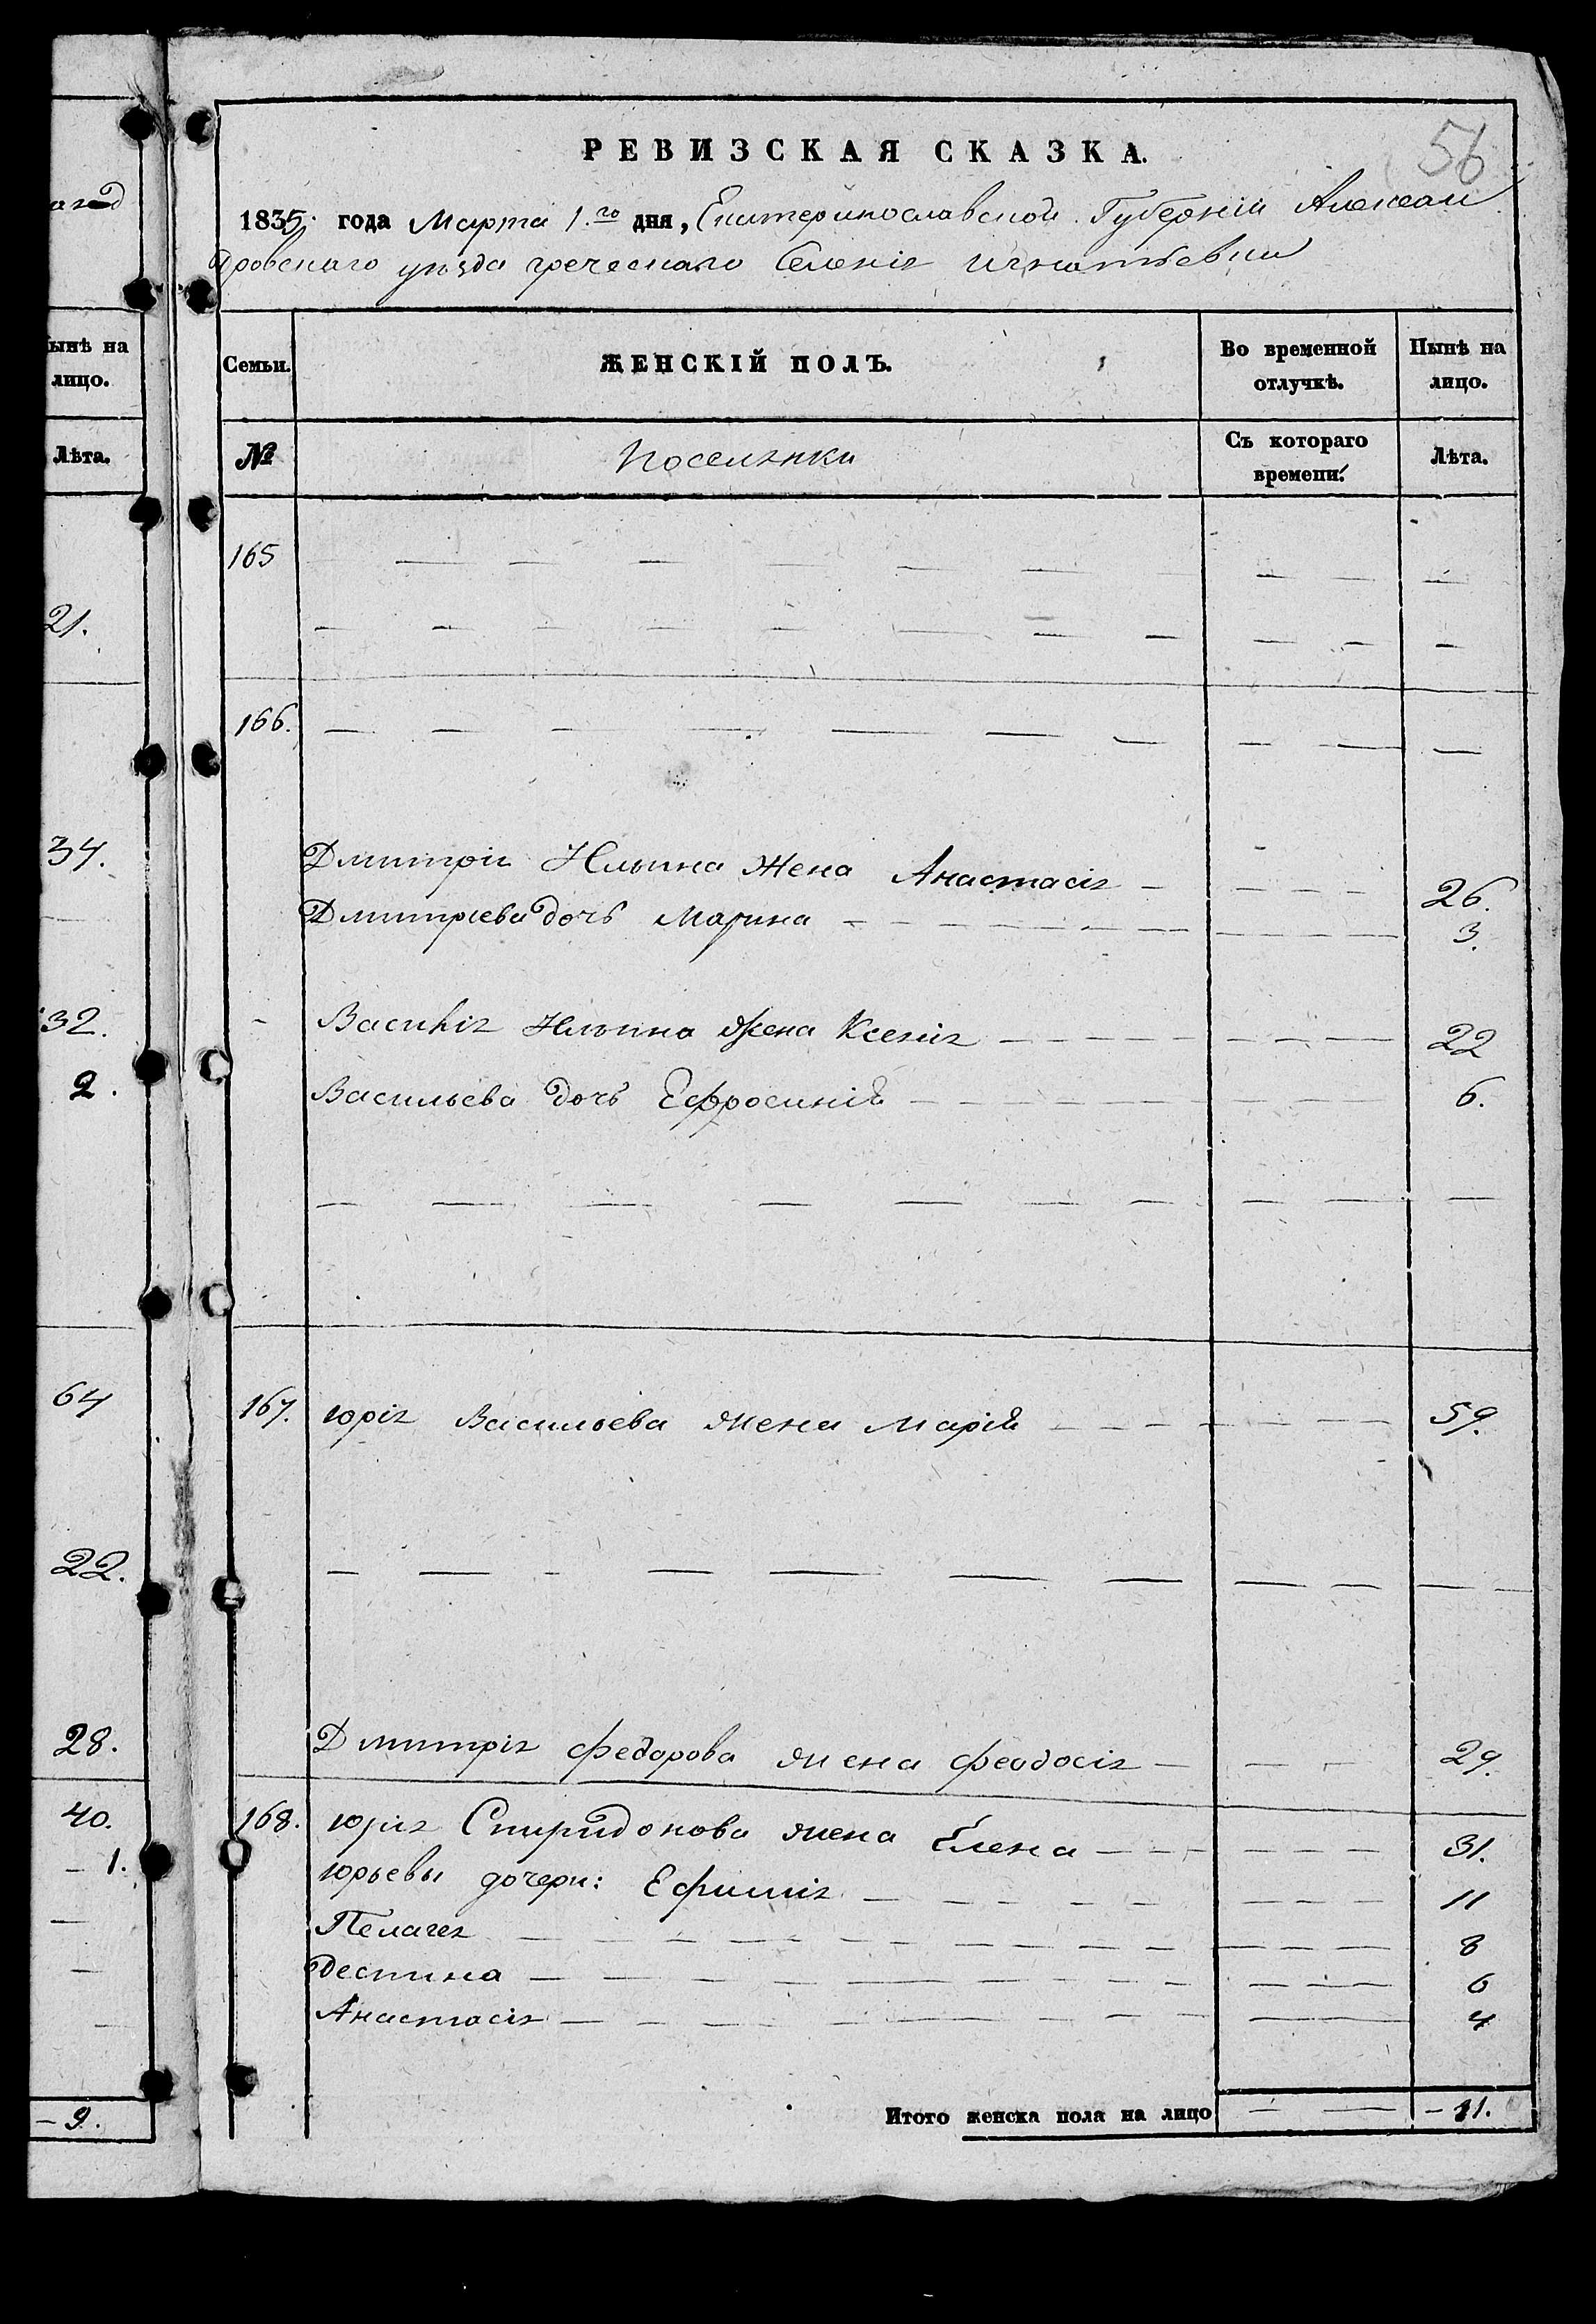 56
РЕВИЗСКАЯ СКАЗКА.
1835. года Марта 1.го дня, Екатеринославской Губерніи Алексан
дровскаго уѣзда греческаго Селенія Игнатьевки
ынѣ на
лицо.
Лѣта.
21.
34.
32.
2.
64
22.
28.
40.
- 1.
- 9.
Семьи. ЖЕНСКІЙ ПОЛЪ. Во временной отлучкѣ. Нынѣ на лицо.
№ Поселянки Съ котораго времени. Лѣта.
165 — — — — — — — — — — —
— — — — — — — — — — —
166. — — — — — — — — — —
Дмитрія Ильина жена Анастасія — — — — — 26.
Дмитріева дочь Марина — — — — — — 3.
- Василія Ильина жена Ксенія — — — — — — 22
Васильева дочь Ефросинія — — — — — — 6.
— — — — — — — — — —
167. Юрія Васильева жена Марія — — — — — — 59.
— — — — — — — — — — —
Дмитрія Федорова жена Феодосія — — — 29.
168. Юрія Спиридонова жена Елена — — — — — — 31.
Юрьевы дочери: Ефимія — — — — — — — 11
Пелагея — — — — — — — — — 8
Деспина — — — — — — — — 6
Анастасія — — — — — — — — 4
Итого женска пола на лицо — — - 11.